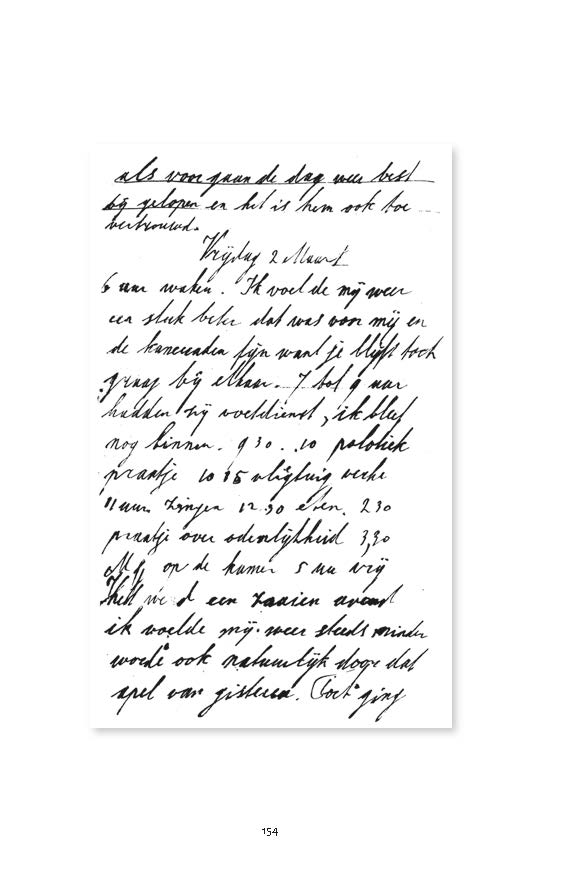 als voor gaan de dag weer best
bij gelopen en het is hem ook toe
vertrouwd.
Vrijdag 2 Maart
6 uur waken. Ik voel de mij weer
een stuk beter dat was voor mij en
de kameraden fijn want je blijft toch
graag bij elkaar. 7 tot 9 uur
hadden zij voetdienst, ik bleef
nog binnen. 9 30 . 10 polotiek
praatje 10 15 vligtuig
11 uur Zingen 12.30 eten. 2 30
praatje over odenlijkheid 3,30
M.G. op de kamer 5 uur vrij
een avend
ik voelde mij weer steeds minder
woede ook natuurlijk dat
apel van gisteren. Toet ging
154